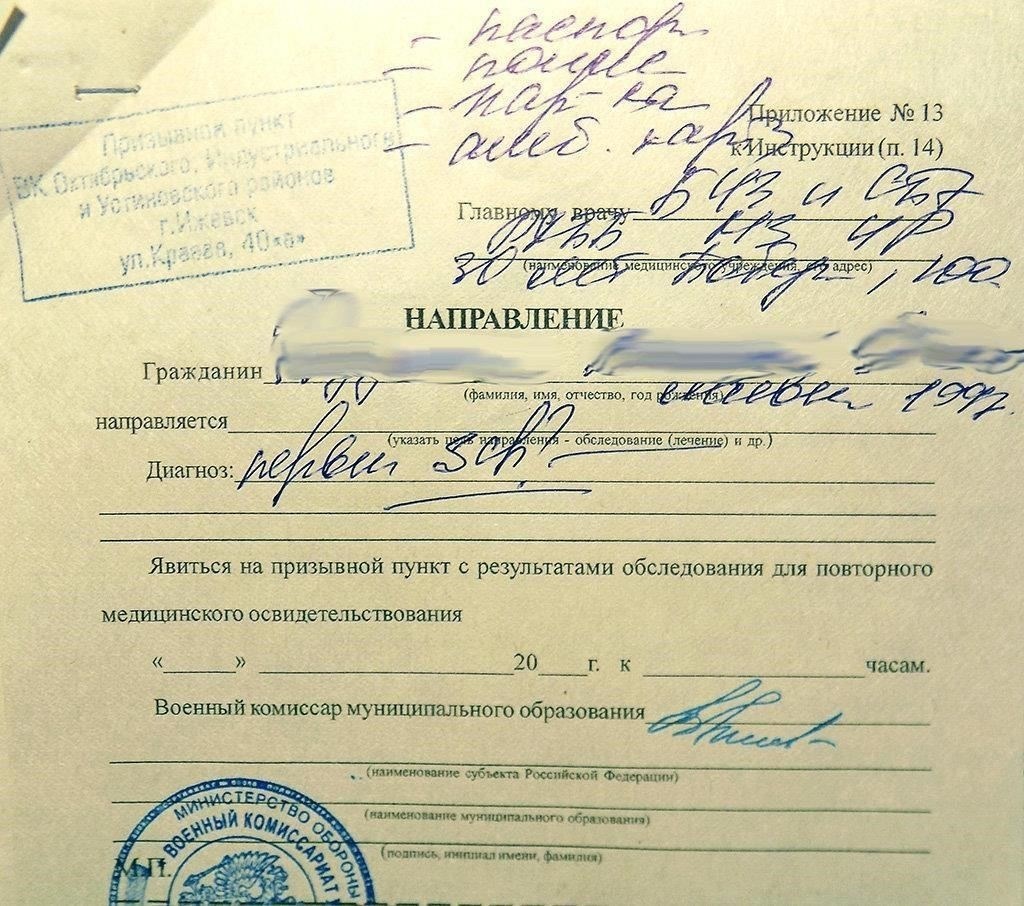 - паспорт
- полис
- нар-ка
- амб. карта
Призывной пункт
ВК Октябрьского, Индустриального
и Устиновского районов
г. Ижевск
ул. Краева, 40 «а»
Приложение № 13
к Инструкции (п. 14)
Главному врачу БУЗ и СПЭ
РКПБ МЗ УР
(наименование медицинского учреждения, его адрес)
30 лет Победы, 100
НАПРАВЛЕНИЕ
Гражданин
(фамилия, имя, отчество, год рождения)
1997.
направляется
(указать цель направления - обследование (лечение) и др.)
Диагноз:
Явиться на призывной пункт с результатами обследования для повторного
медицинского освидетельствования
«______» ____________________20____г. к __________________часам.
Военный комиссар муниципального образования
(наименование субъекта Российской Федерации)
(наименование муниципального образования)
(подпись, инициал имени, фамилия)
М.П.
МИНИСТЕРСТВО ОБОРОНЫ
ВОЕННЫЙ КОМИССАРИАТ